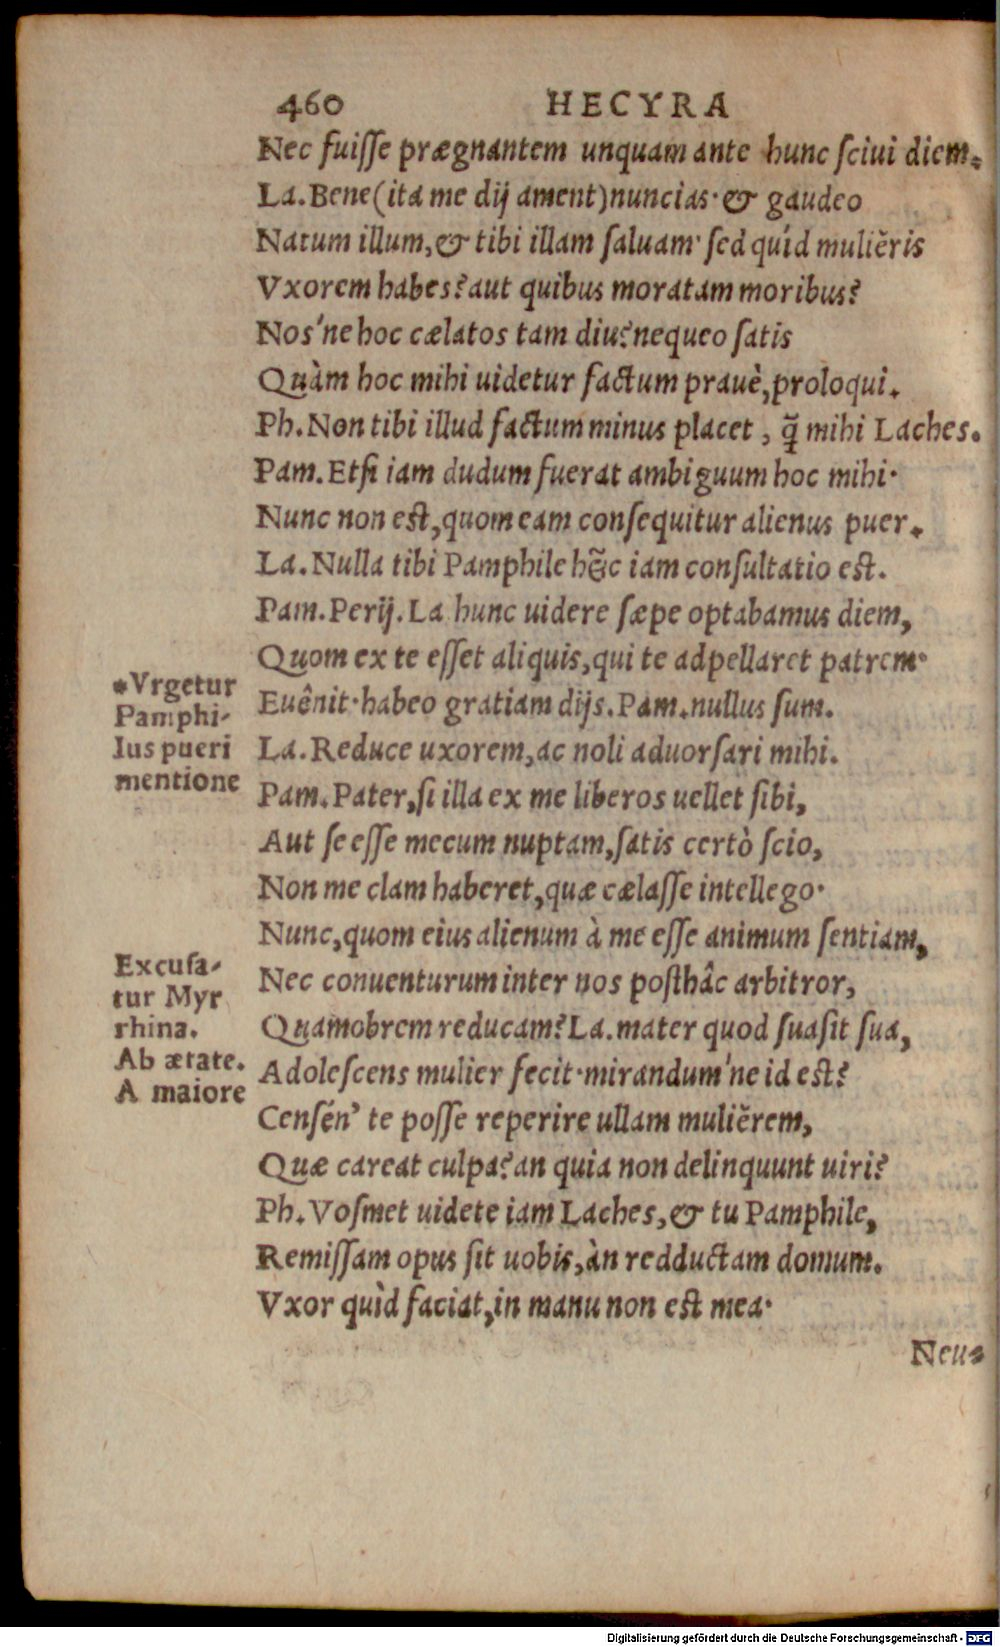 460 HECYRA
Nec fuiſſe prægnantem unquam ante hunc ſciui diem.
La. Bene (ita me dij ament) nuncias· & gaudeo
Natum illum, & tibi illam ſaluam· ſed quíd muliĕris
Vxorem habes? aut quibus moratam moribus?
Nos'ne hoc cælatos tam diu? nequeo ſatis
Quàm hoc mihi uidetur factum prauè, proloqui.
Ph. Non tibi illud factum minus placet, q̃ mihi Laches.
Pam. Etſi iam dudum fuerat ambiguum hoc mihi·
Nunc non est, quom eam conſequitur alienus puer.
La. Nulla tibi Pamphile h&̃c iam conſultatio est.
Pam. Perij. La hunc uidere ſæpe optabamus diem,
Quom ex te eſſet aliquis, qui te adpellaret patrem·
Euênit· habeo gratiam dijs. Pam. nullus ſum.
La. Reduce uxorem, ac noli aduorſari mihi.
Pam. Pater, ſi illa ex me liberos uellet ſibi,
Aut ſe eſſe mecum nuptam, ſatis certò ſcio,
Non me clam haberet, quæ cælaſſe intellego·
Nunc, quom eius alienum à me eſſe animum ſentiam,
Nec conuenturum inter nos posthâc arbitror,
Quamobrem reducam? La. mater quod ſuaſit ſua,
Adoleſcens mulier fecit· mirandum'ne id est?
Cenſén' te poſſe reperire ullam muliĕrem,
Quæ careat culpa? an quia non delinquunt uiri?
Ph. Voſmet uidete iam Laches, & tu Pamphile,
Remiſſam opus ſit uobis, àn redductam domum.
Vxor quìd faciat, in manu non est mea·
Neu-
*Vrgetur
Pamphi-
lus pueri
mentione
Excuſa-
tur Myr
rhina.
Ab ætate.
A maiore
Digitalisierung gefördert durch die Deutsche Forschungsgemeinschaft - DFG